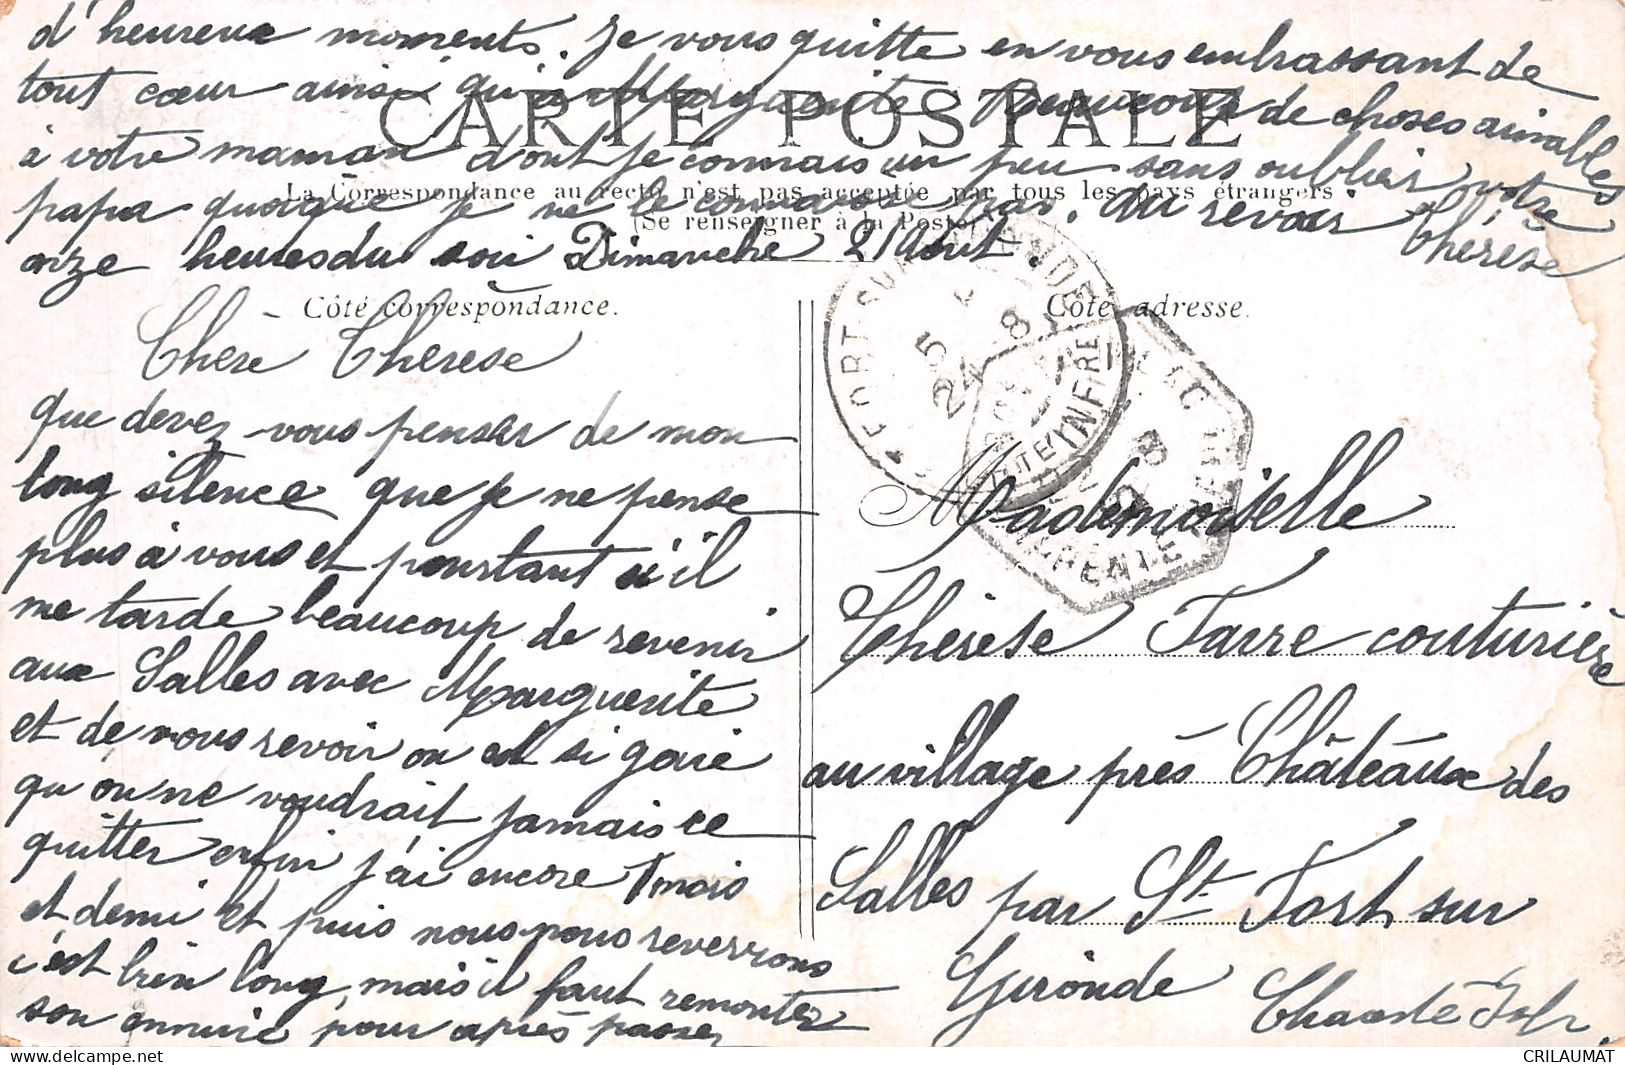 d'heureux moments. Je vous quitte en vous embrassant de
tout cœur ainsi qu'à Marguerite Beaucoup de choses aimables
CARTE POSTALE
à votre maman dont je connais un peu sans oublier votre
La Correspondance au recto n'est pas acceptée par tous les pays étrangers
papa quoique je ne le connaisse pas. Au revoir Thérèse
(Se renseigner à la Poste)
onze heures du soir Dimanche 21 Août.
Côté correspondance.
Côté adresse.
Chère Thérèse
que devez vous penser de mon
long silence que je ne pense
plus à vous et pourtant s'il
me tarde beaucoup de revenir
aux Salles avec Marguerite
et de vous revoir on est si gaie
qu'on ne voudrait jamais ce
quitter enfin j'ai encore 1 mois
et demi et puis nous nous reverrons
c'est bien long, mais il faut remonter
son ennuie pour après passer
PORT SUR GIRONDE
25
24 8
CHTE INFRE
CHARENTE INFRE
Mademoiselle
Thérèse Farre couturière
au village près Châteaux des
Salles par St Fort sur
Gironde Charente Infr.
CRILAUMAT